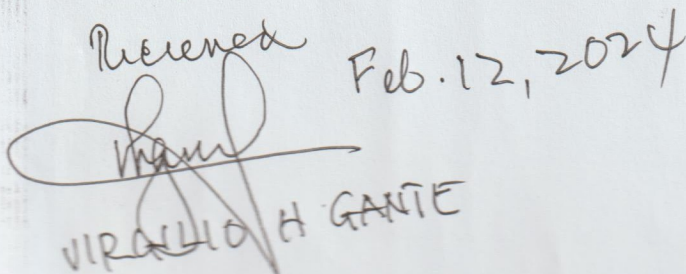 Received
Feb. 12, 2024
VIRGILIO H GANTE